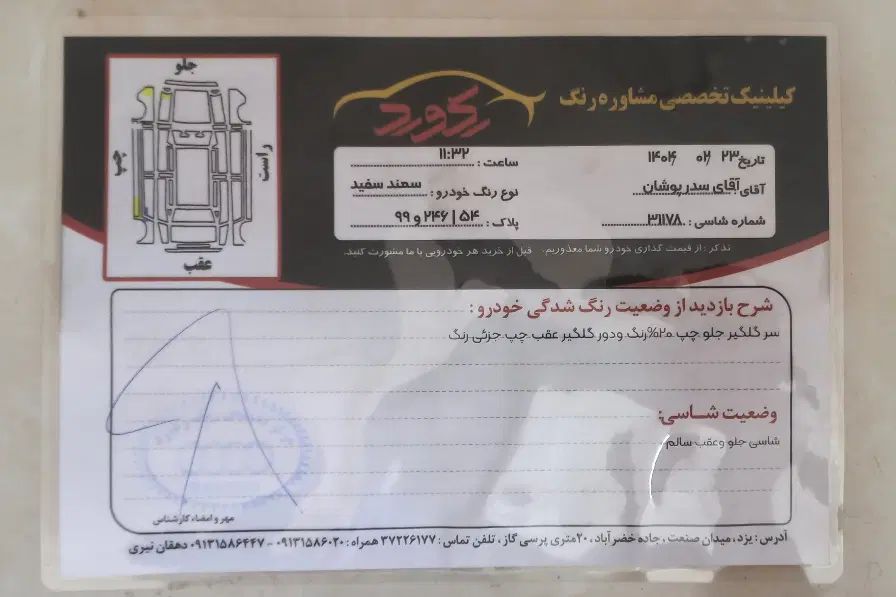 کیلینیک تخصصی مشاوره رنگ
رکورد
تاریخ ۲۳ ۰۲ ۱۴۰۴
ساعت : ۱۱:۳۲
آقای آقای سدرپوشان
نوع رنگ خودرو : سمند سفید
شماره شاسی : ۳۱۱۷۸
پلاک : ۵۴ | ۲۴۶ و ۹۹
تذکر : از قیمت گذاری خودرو شما معذوریم. قبل از خرید هر خودرویی با ما مشورت کنید.
جلو
چپ
راست
عقب
شرح بازدید از وضعیت رنگ شدگی خودرو :
سر گلگیر جلو چپ ۲۰%رنگ ودور گلگیر عقب چپ جزئی رنگ
وضعیت شاسی:
شاسی جلو وعقب سالم
مهر و امضاء کارشناس
آدرس : یزد، میدان صنعت، جاده خضرآباد، ۲۰متری پرسی گاز، تلفن تماس : ۳۷۲۲۶۱۷۷ همراه : ۰۹۱۳۱۵۸۶۰۲۰ - ۰۹۱۳۱۵۸۶۴۴۷ دهقان نیری